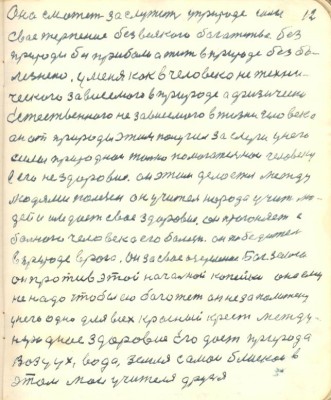 Она сможет заслужит у природе силы 12
свое терпение без всякого богатство. без
природы бы прибыли а жит в природе без бо-
лезнено, у меня как в человека не техни-
ческого зависемого в природе а физически
Естественного не зависемого в жизни человека
он от природы этим получил заслуги у него
силы природном только помогат человеку
в его нездоровия. он этим делает между
людями он учител народа учит лю-
дей и им дает свое здоровия. он прогоняет с
болного человека его болезн. он победител
в природе врага. Он за свое
он против этой началной копейки она ему
не надо чтобы богатет он не за политику
у него одно для всех красный крест между-
народное здоровие Его дает природа
воздух, вода, земля самои близкои в
этом мои учителя друзя